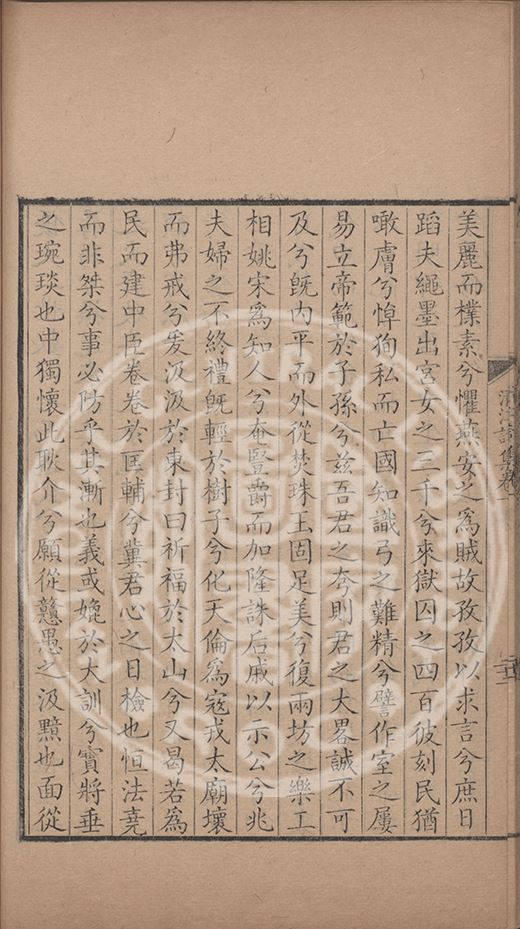 美麗而樸素兮懼燕安之爲賊故孜孜以求言兮庶日
蹈夫繩墨出宮女之三千兮來獄囚之四百彼刻民猶
噉膚兮悼狥私而亡國知識弓之難精兮譬作室之屢
易立帝範於子孫兮兹吾君之夸則君之大畧誠不可
及兮旣内平而外從焚珠玉固足美兮復兩坊之樂工
相姚宋爲知人兮奄豎爵而加隆誅后戚以示公兮兆
夫婦之不終禮旣輕於樹子兮化天倫爲寇戎太廟壞
而弗戒兮发汲汲於東封曰祈福於太山兮又曷若爲
民而建中臣卷卷於匡輔兮冀君心之日檢也恒法堯
而非桀兮事必防乎其漸也義或媲於大訓兮寳將垂
之琬琰也中獨懷此耿介兮願從戇愚之汲黯也面從
詩集卷一